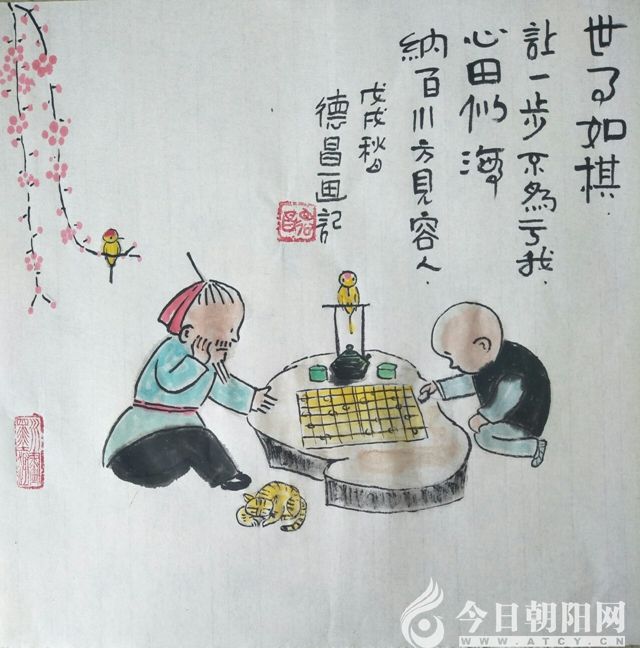 世事如棋.
让一步不為亏我.
心田似海
納百川方見容人.
戊戌秋日
德昌画記
今日朝阳网
WWW.ATCY.CN